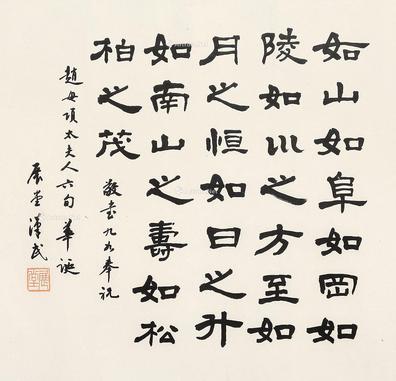 如山如阜如岡如
陵如川之方至如
月之恒如日之升
如南山之壽如松
柏之茂
敬書九如奉祝
趙母項太夫人六旬華誕
展堂漢民
展堂